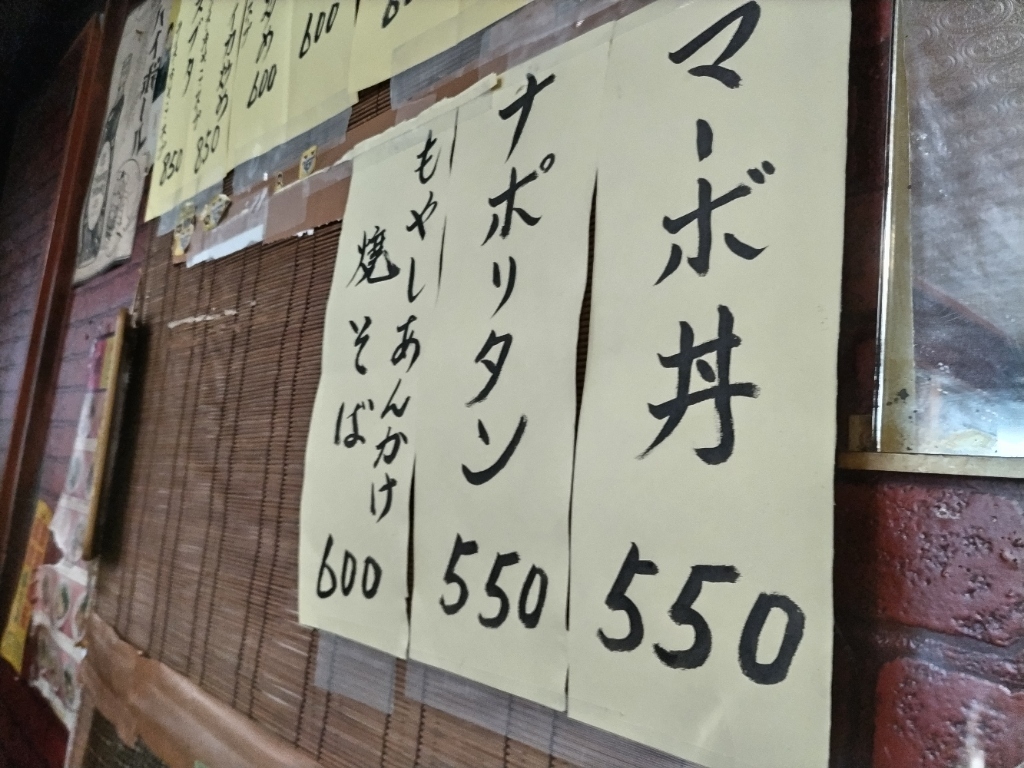 マーボ丼
550
ナポリタン
550
もやしあんかけ
焼そば
600
600
600
850
850
ハイボール